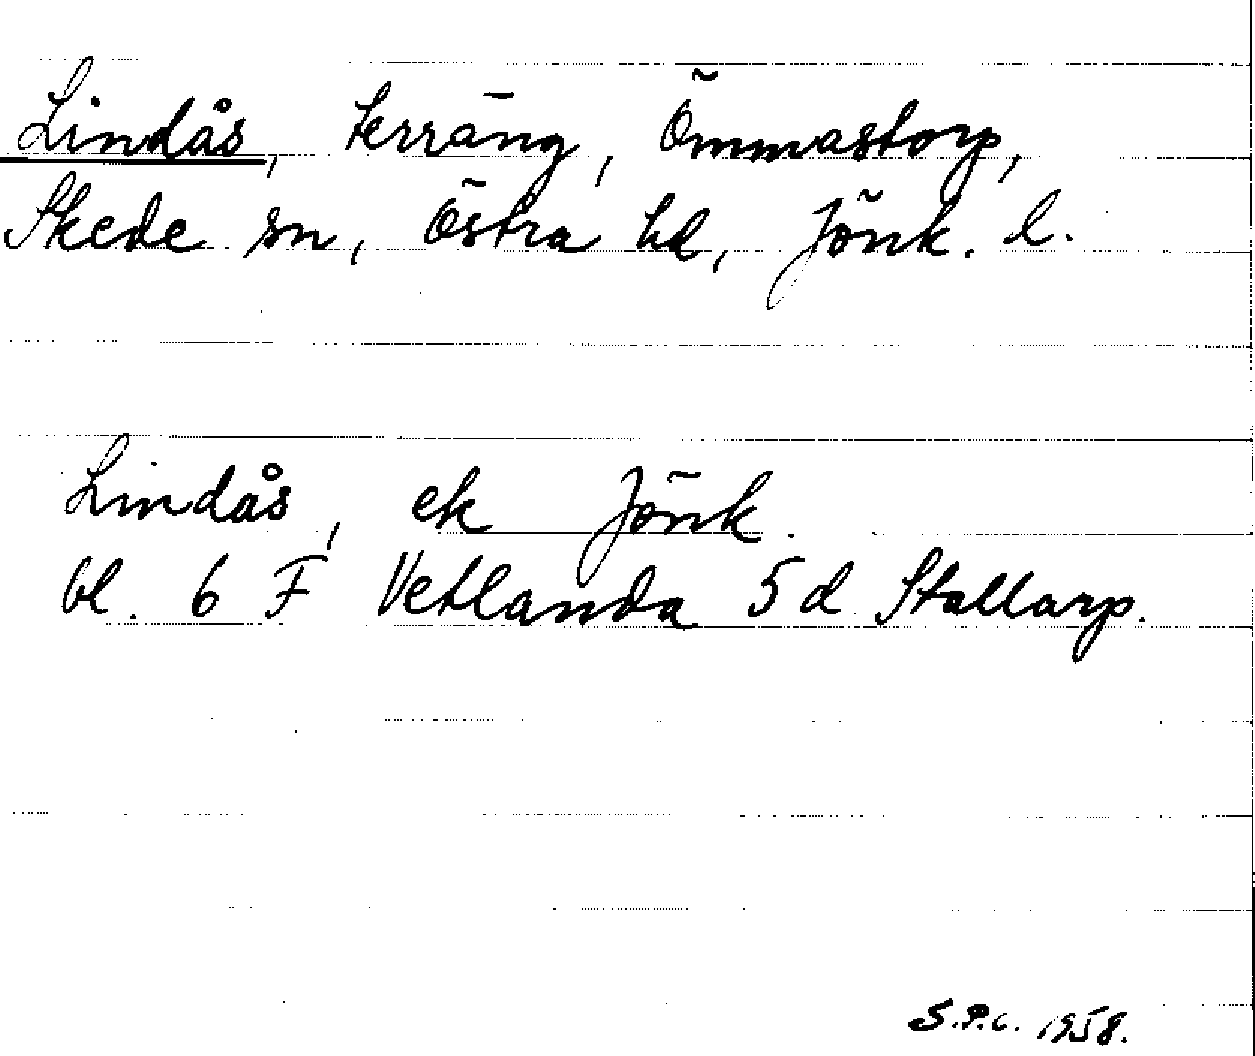 Lindås, terräng, Ömmastorp,
Skede sn, Östra hd, Jönk. l.
Lindås, ek Jönk.
bl. 6 F Vetlanda 5 d Stallarp.
S.P.C. 1958.